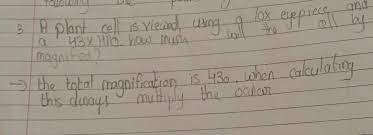 following
3. A plant cell is viewed using a 10x eyepiece and
a 43x H/O. how much will the cell by
magnified?
→ the total magnification is 430. when calculating
this always multiply the ocular